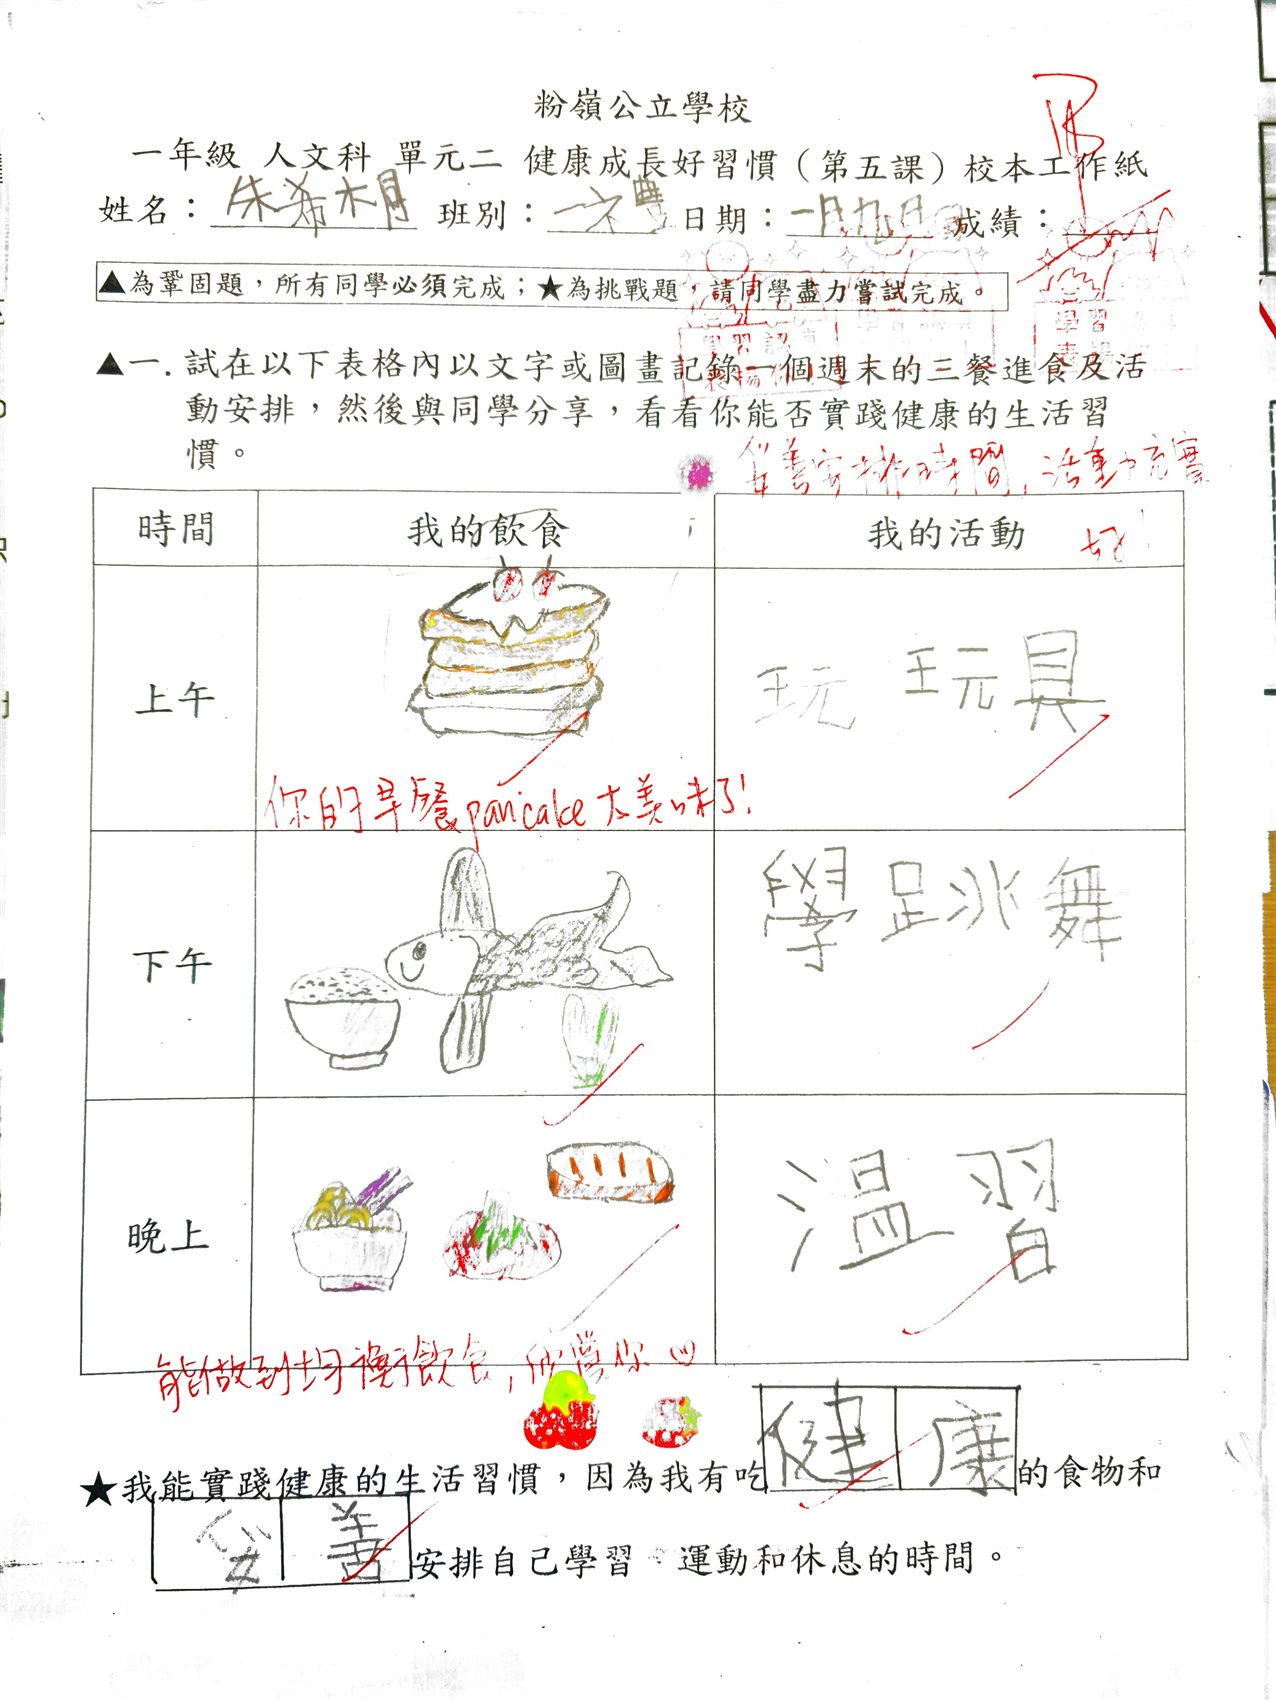 粉嶺公立學校
一年級 人文科 單元二 健康成長好習慣（第五課）校本工作紙
姓名：朱希 班別：一 日期：一月九日 成績：
▲為鞏固題，所有同學必須完成；★為挑戰題，請同學盡力嘗試完成。
▲一. 試在以下表格內以文字或圖畫記錄一個週末的三餐進食及活
動安排，然後與同學分享，看看你能否實踐健康的生活習
慣。
妥善安排時間，活動充實
時間 我的飲食 我的活動
好！
上午 玩 玩具
你的早餐pancake太美味了！
下午 學跳舞
晚上 溫習
能做到均衡飲食，欣賞你
★我能實踐健康的生活習慣，因為我有吃健康的食物和
妥善安排自己學習、運動和休息的時間。